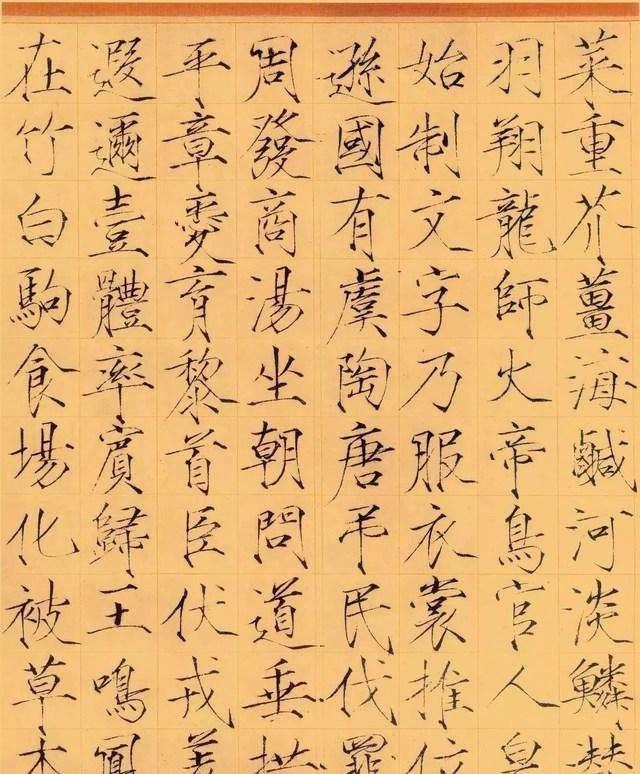 菜重芥薑海鹹河淡鱗潛
羽翔龍師火帝鳥官人皇
始制文字乃服衣裳推位
遜國有虞陶唐吊民伐罪
周發商湯坐朝問道垂拱
平章愛育黎首臣伏戎羌
遐邇壹體率賓歸王鳴鳳
在竹白駒食場化被草木